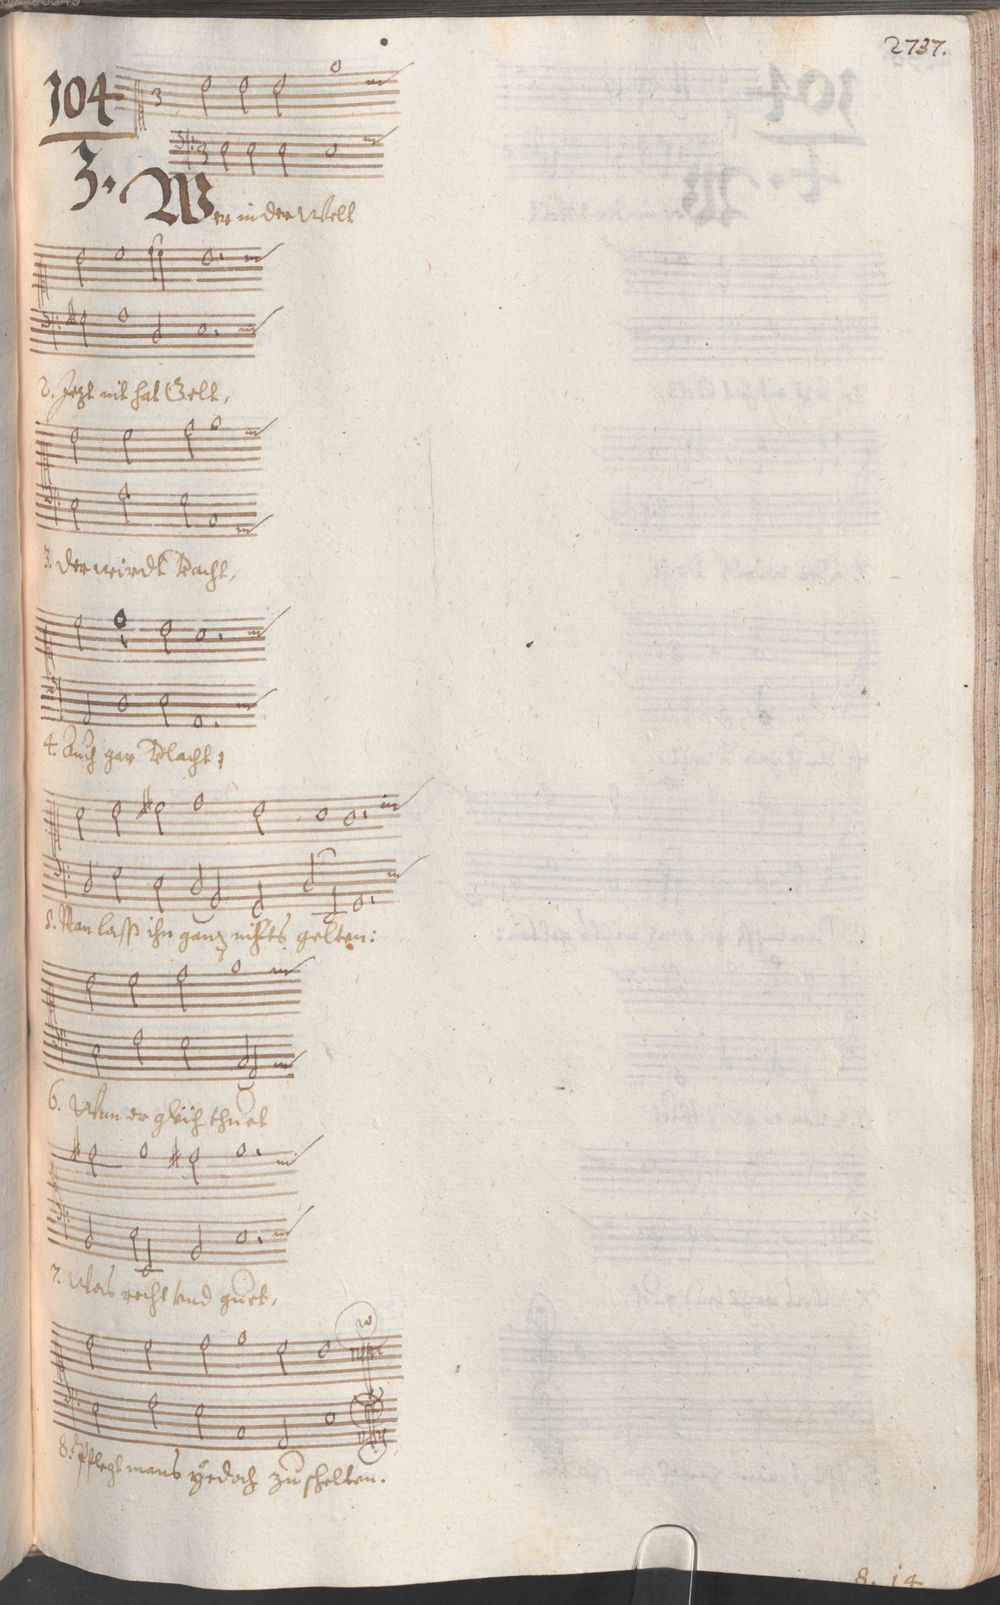 2737.
104
3.
Wer in der Welt
2. Jezt nit hat Gelt,
3. Der wirdt Veracht,
4. Auch gar Verlacht,
5. Man lasst ihn ganz nichts gelten:
6. Wan er gleich thuet
7. Was recht und guet,
8. Pflegt mans yedoch zu schelten.
8. 14